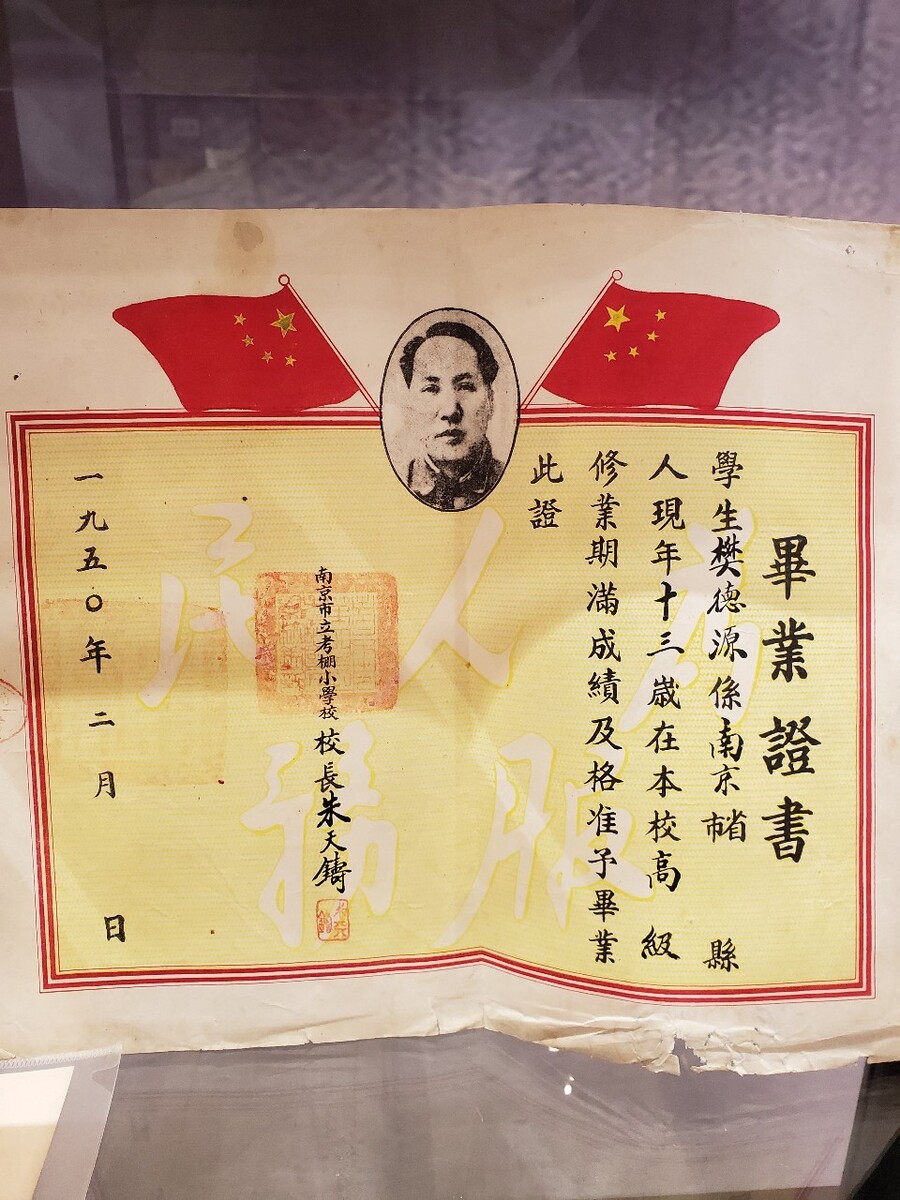 畢業證書
學生樊德源係南京市省 縣
人現年十三歲在本校高 級
修業期滿成績及格准予畢業
此證
南京市立考棚小學校 校長朱天鑄
一九五〇年二月 日
為人民
服務